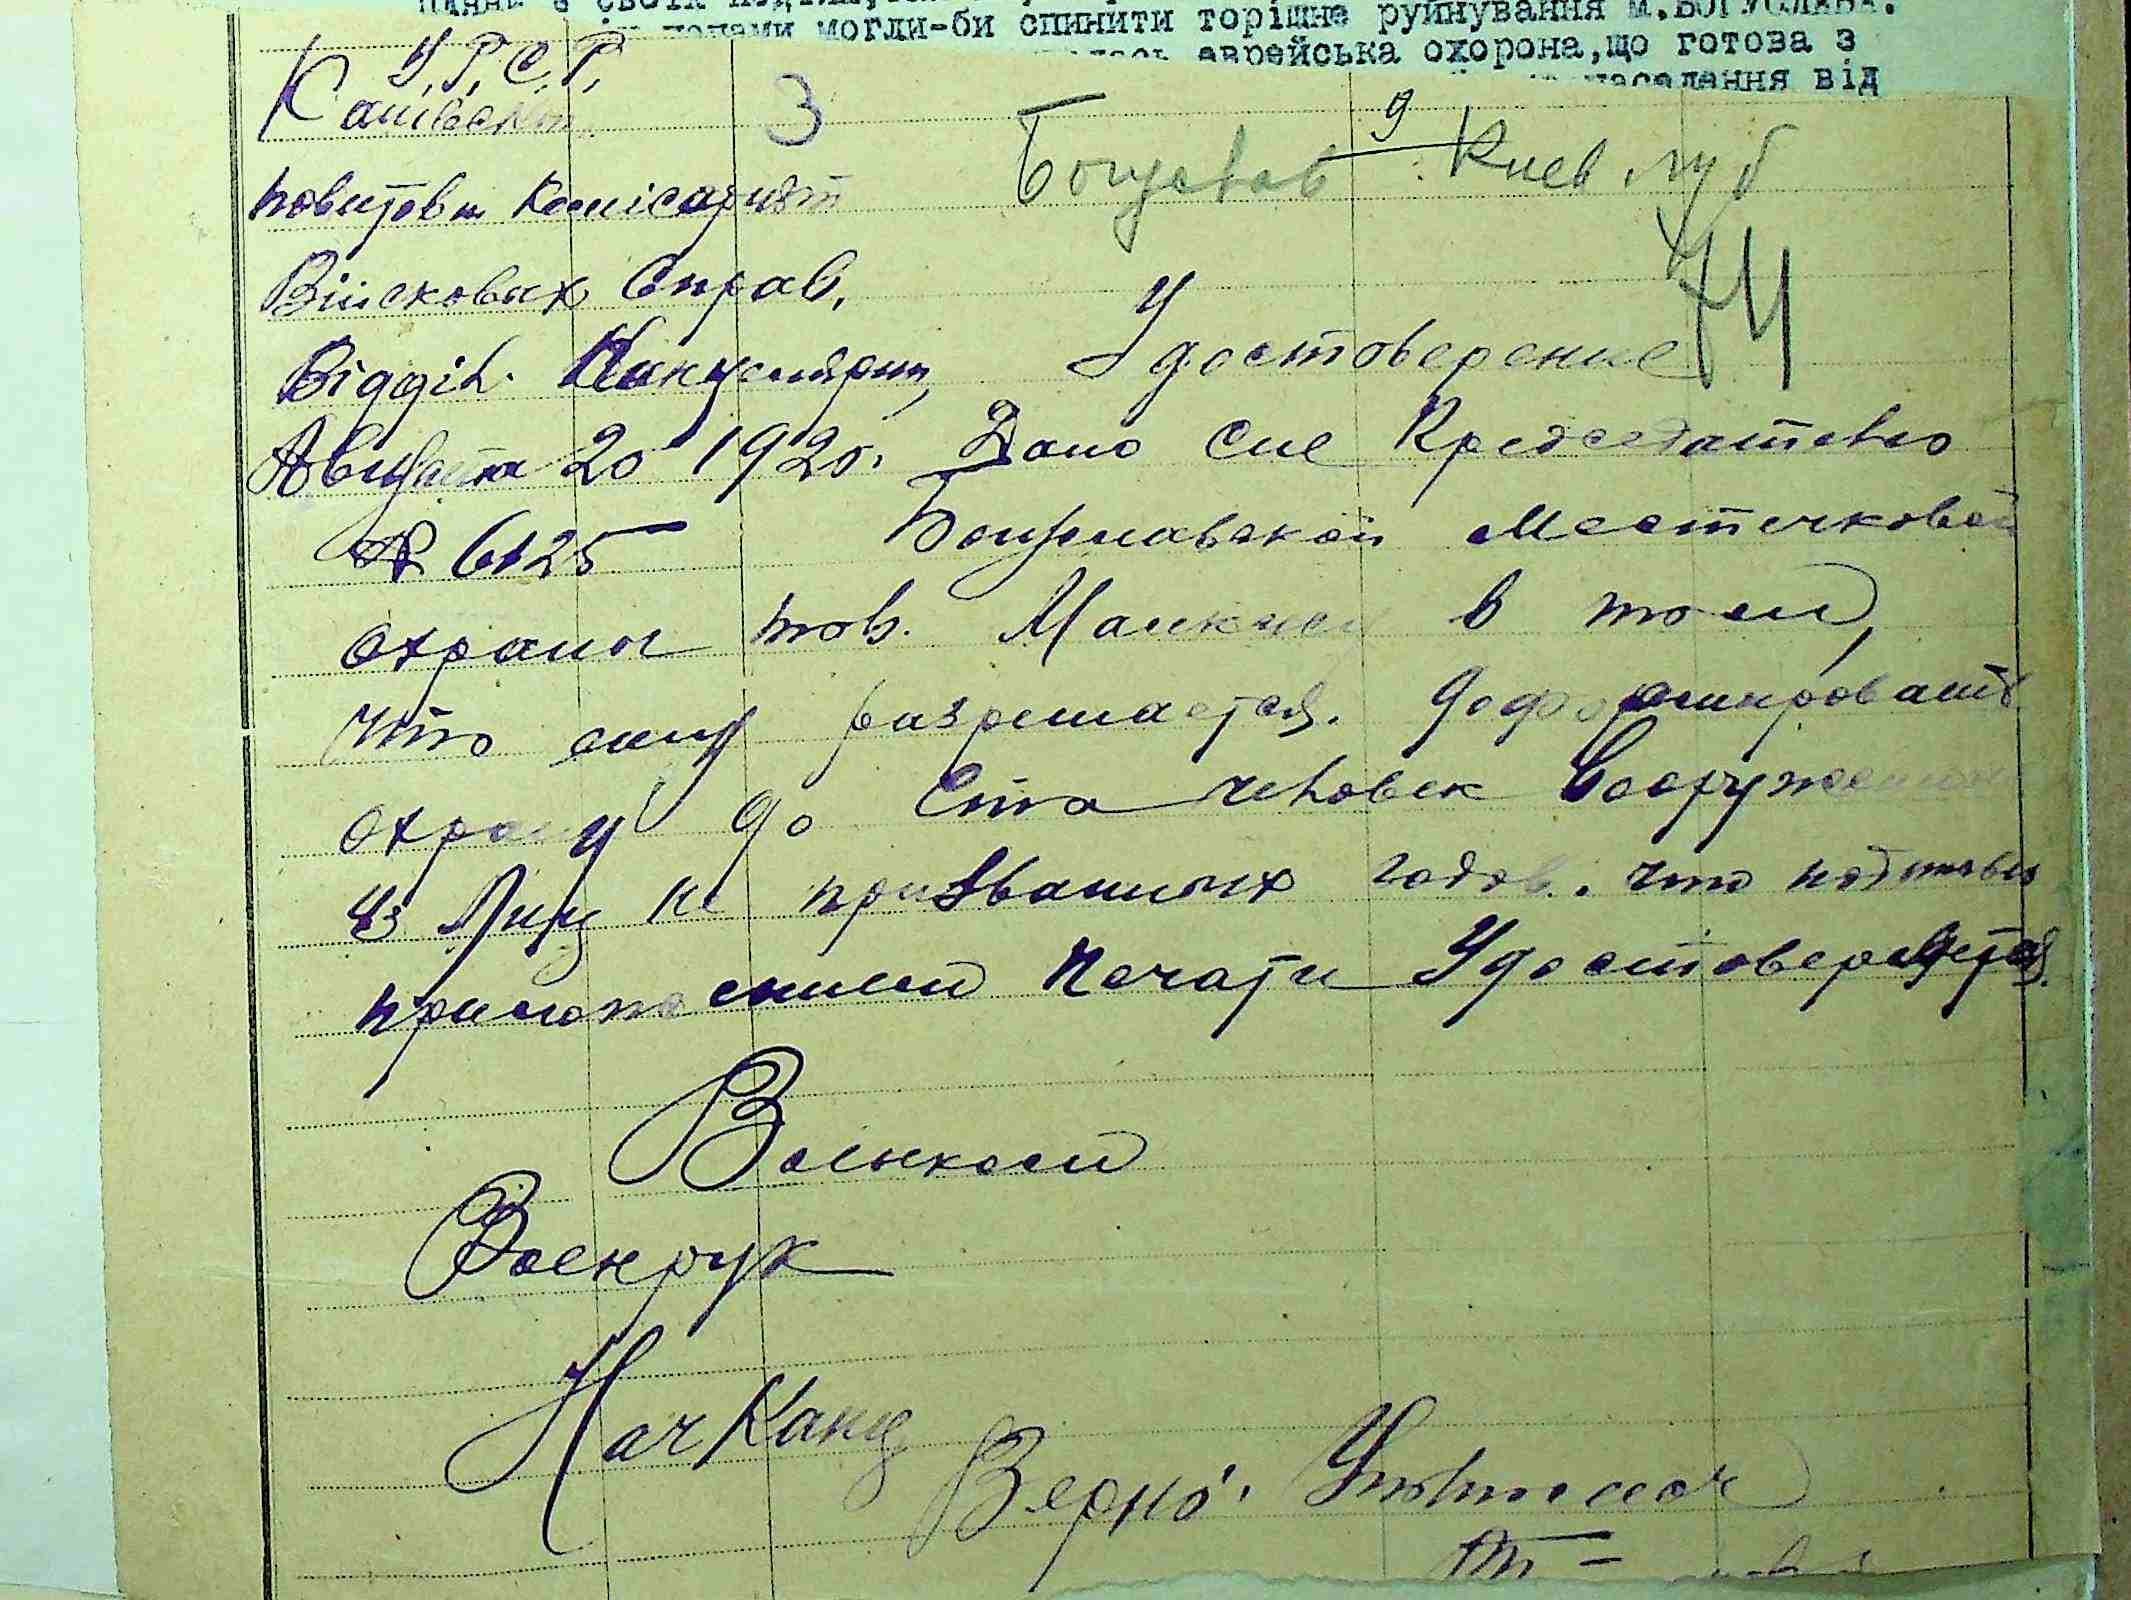 могли-би спинити торішнє руйнування м.Богуслава.
еврейська охорона,що готова з
населення від
У.Р.С.Р.
Канівськ.
3
9
Богуслав Киев губ
74
повитов Комісаріят
Війсковых Справ.
Відділ. Канцелярии
Удостоверение
Августа 20 1920.
Дано Сие Председателю
№ 6125
Богуславской Местечковой
охраны тов. в том,
что ему разрешается. доформировать
охрану до Ста человек
из Лиц не призванных годов. что подписью
приложением Печати Удостоверяется.
Военком
Военрук
НачКанц
Верно.